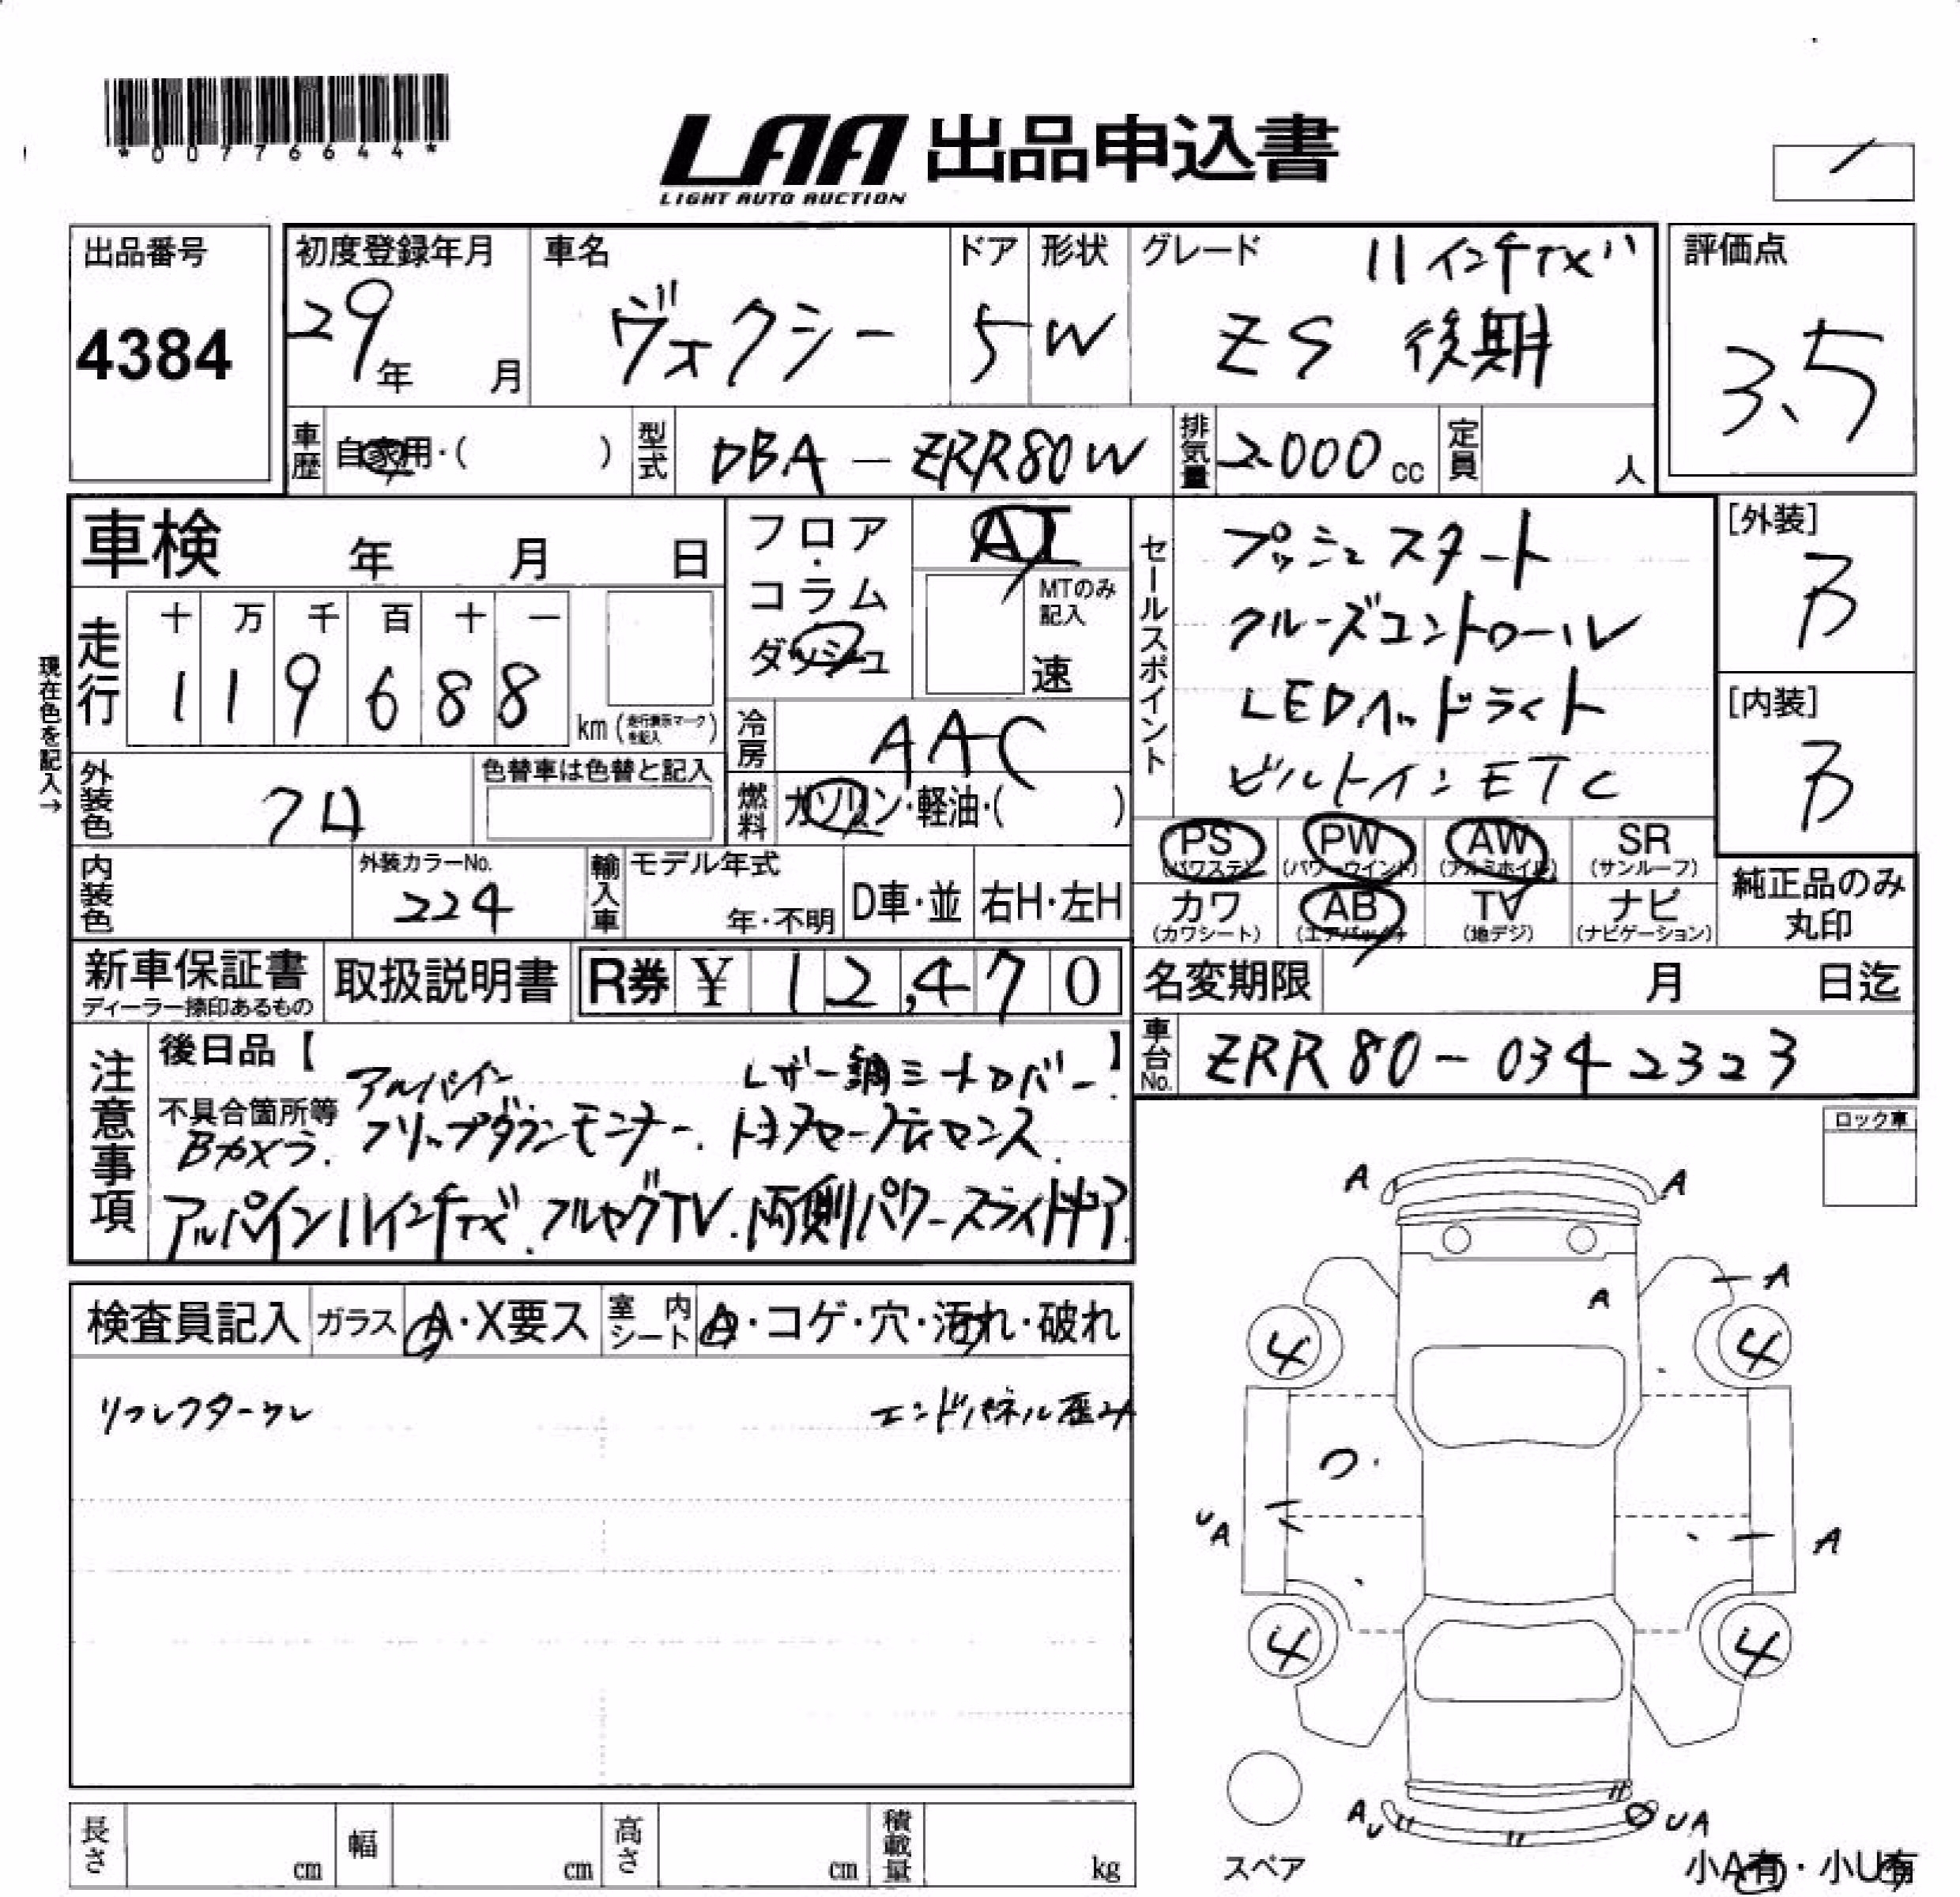 *00776644*
LAA 出品申込書
LIGHT AUTO AUCTION
出品番号
4384
初度登録年月
29年 月
車名
ヴォクシー
ドア
5
形状
W
グレード
11インチナビ
ZS 後期
評価点
3.5
車歴 自家用・( )
型式 DBA-ZRR80W
排気量 2000cc
定員 人
車検 年 月 日
フロア・コラム ダッシュ
AT
MTのみ記入
速
セールスポイント
プッシュスタート
クルーズコントロール
LEDヘッドライト
ビルトインETC
[外装]
B
[内装]
B
現在色を記入→
走行
十 万 千 百 十 一
1 1 9 6 8 8 km (走行表示マークを記入)
冷房 AAC
外装色 クロ
色替車は色替と記入
燃料 ガソリン・軽油・( )
PS (パワステ)
PW (パワーウインド)
AW (アルミホイル)
SR (サンルーフ)
カワ (カワシート)
AB (エアバッグ)
TV (地デジ)
ナビ (ナビゲーション)
純正品のみ丸印
内装色
外装カラーNo.
224
輸入車
モデル年式
年・不明
D車・並
右H・左H
新車保証書
ディーラー捺印あるもの
取扱説明書
R券 ¥ 12,470
名変期限 月 日迄
車台No. ZRR80-0342323
注意事項
後日品【 】
不具合箇所等
アルパイン レザー調シートカバー.
Bカメラ. フリップダウンモニター. トヨタセーフティセンス.
アルパイン11インチナビ.フルセグTV.両側パワースライドドア.
ロック車
検査員記入
ガラス A・X要ス
室内シート A・コゲ・穴・汚れ・破れ
リフレクターワレ
エンドパネル歪み
A A
A
A
4 4
UA
A
4 4
AU
UA
スペア
小A有・小U有
長さ cm
幅 cm
高さ cm
積載量 kg